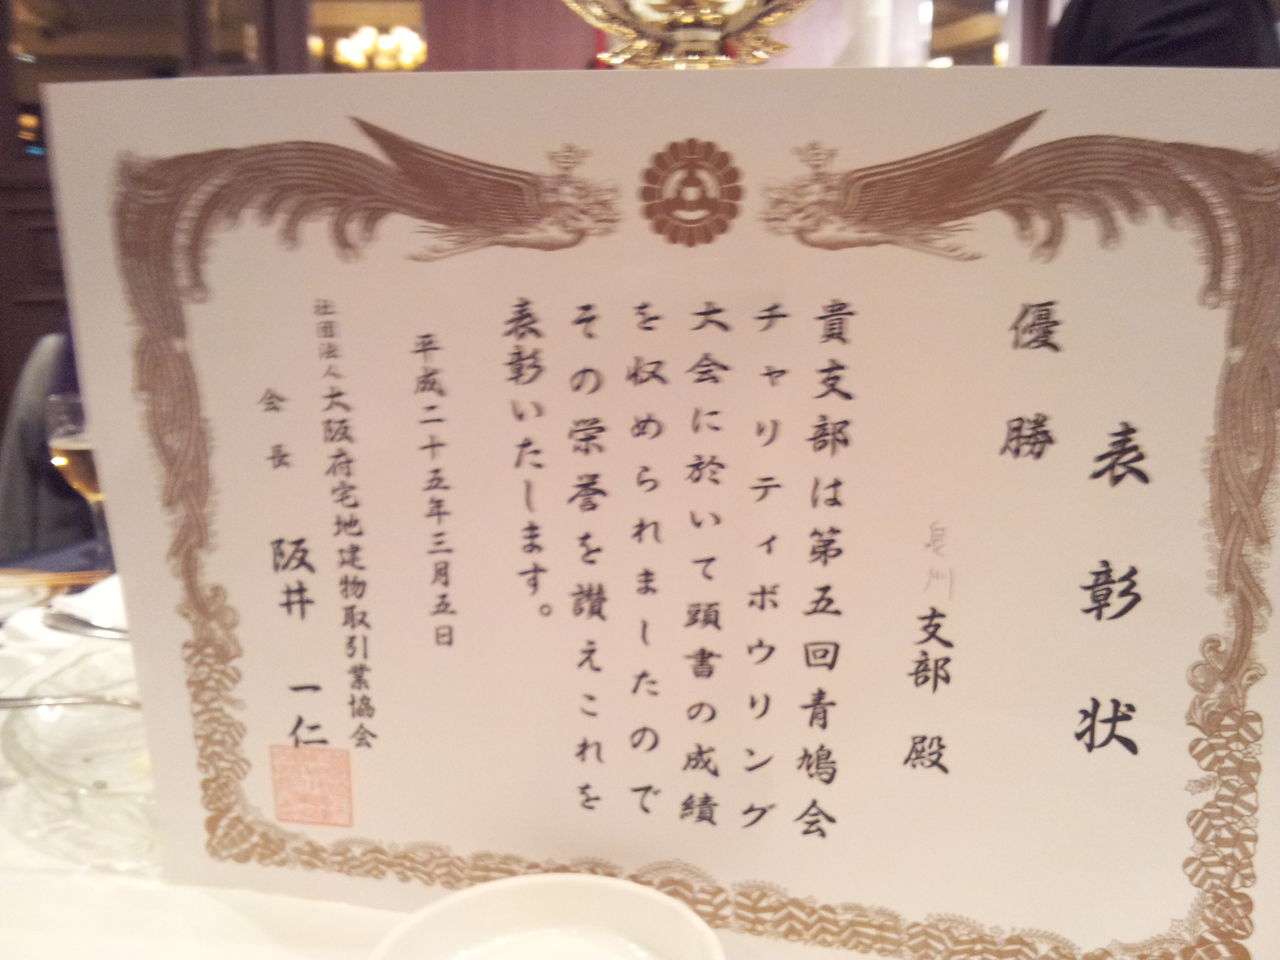 表彰状
優勝
泉州支部殿
貴支部は第五回青鳩会
チャリティボウリング
大会に於いて頭書の成績
を収められましたので
その栄誉を讃えこれを
表彰いたします。
平成二十五年三月五日
社団法人大阪府宅地建物取引業協会
会長 阪井一仁